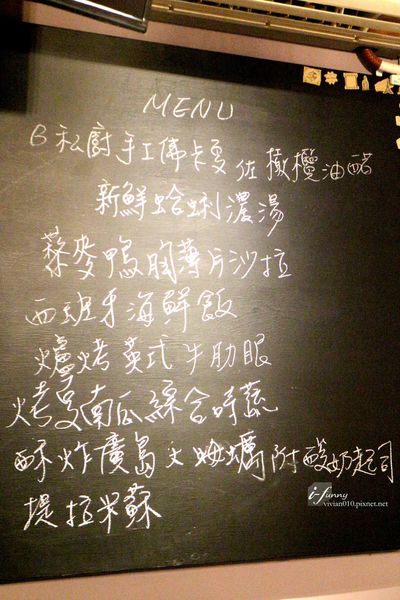 MENU
B私廚手工佛卡夏佐橄欖油醋
新鮮蛤蜊濃湯
藜麥鴨胸薄片沙拉
西班牙海鮮飯
爐烤英式牛肋眼
烤南瓜綜合時蔬
酥炸廣島大牡蠣附酸奶起司
提拉米蘇
i-funny
vivian010.pixnet.net